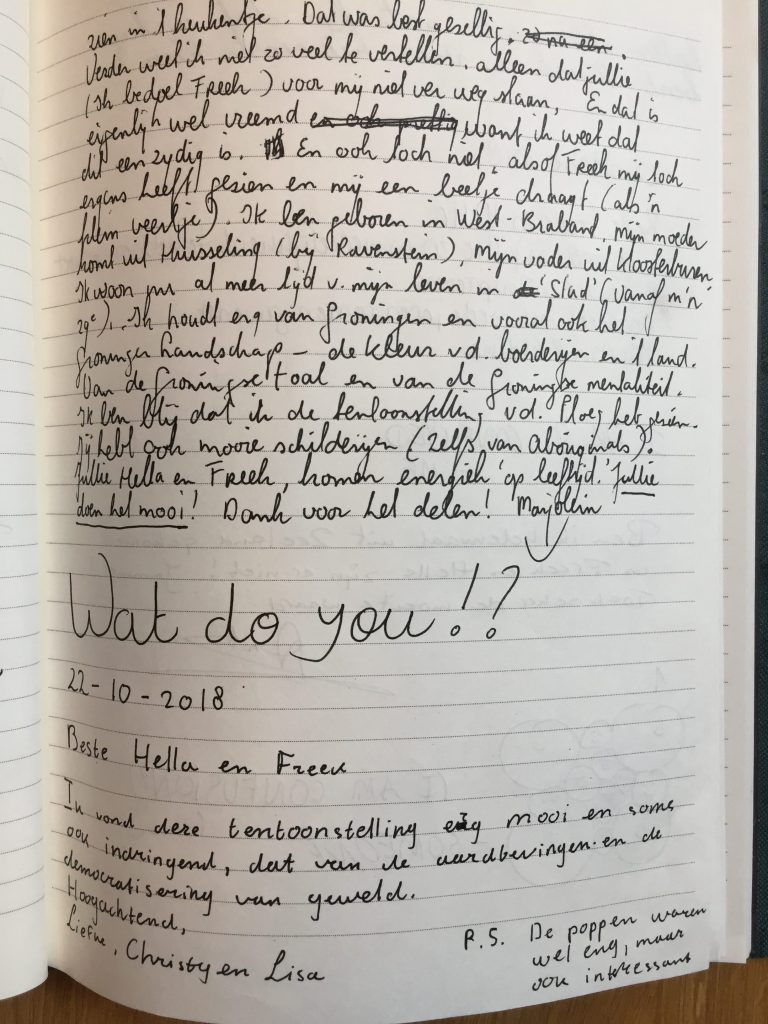 zien in 't keukentje. Dat was best gezellig. zo na een.
Verder weet ik niet zo veel te vertellen. alleen dat jullie
(Ik bedoel Freek) voor mij niet ver weg staan, En dat is
eigenlijk wel vreemd en ook prettig want ik weet dat
dit eenzydig is. En ook toch niet, alsof Freek mij toch
ergens heeft gezien en mij een beetje draagt (als 'n
klein veertje). Ik ben geboren in West-Braband, mijn moeder
komt uit Huisseling (bij Ravenstein), mijn vader uit Kloosterburen
Ik woon nu al meer tijd v. mijn leven in 'Stad' (vanaf m'n
29e). Ik houdt erg van Groningen en vooral ook het
Groninger landschap - de kleur v.d. boerderijen en 't land.
Van de Groningse taal en van de Groningse mentaliteit.
Ik ben blij dat ik de tentoonstelling v.d. Ploeg heb gezien.
Jij hebt ook mooie schilderijen (zelfs van Aboriginals).
Jullie Hella en Freek, komen energiek 'op leeftijd.' Jullie
doen het mooi! Dank voor het delen! Marjolein
Wat do you!?
22-10-2018
Beste Hella en Freek
Ik vond deze tentoonstelling erg mooi en soms
ook indringend, dat van de aardbevingen en de
democratisering van geweld.
Hoogachtend,
Liefde, Christy en Lisa
P.S. De poppen waren
wel eng, maar
ook interessant